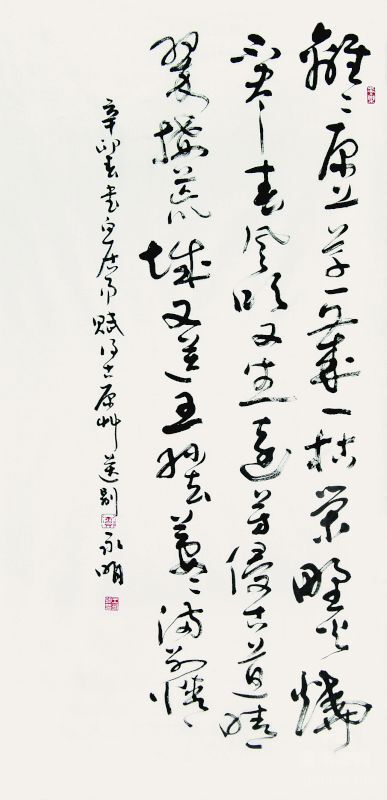 離〻原上草一歲一枯榮野火燒
不盡春風吹又生遠芳侵古道晴
翠接荒城又送王孫去萋〻滿別情
辛卯春書白居易賦得古原艸送別 永明